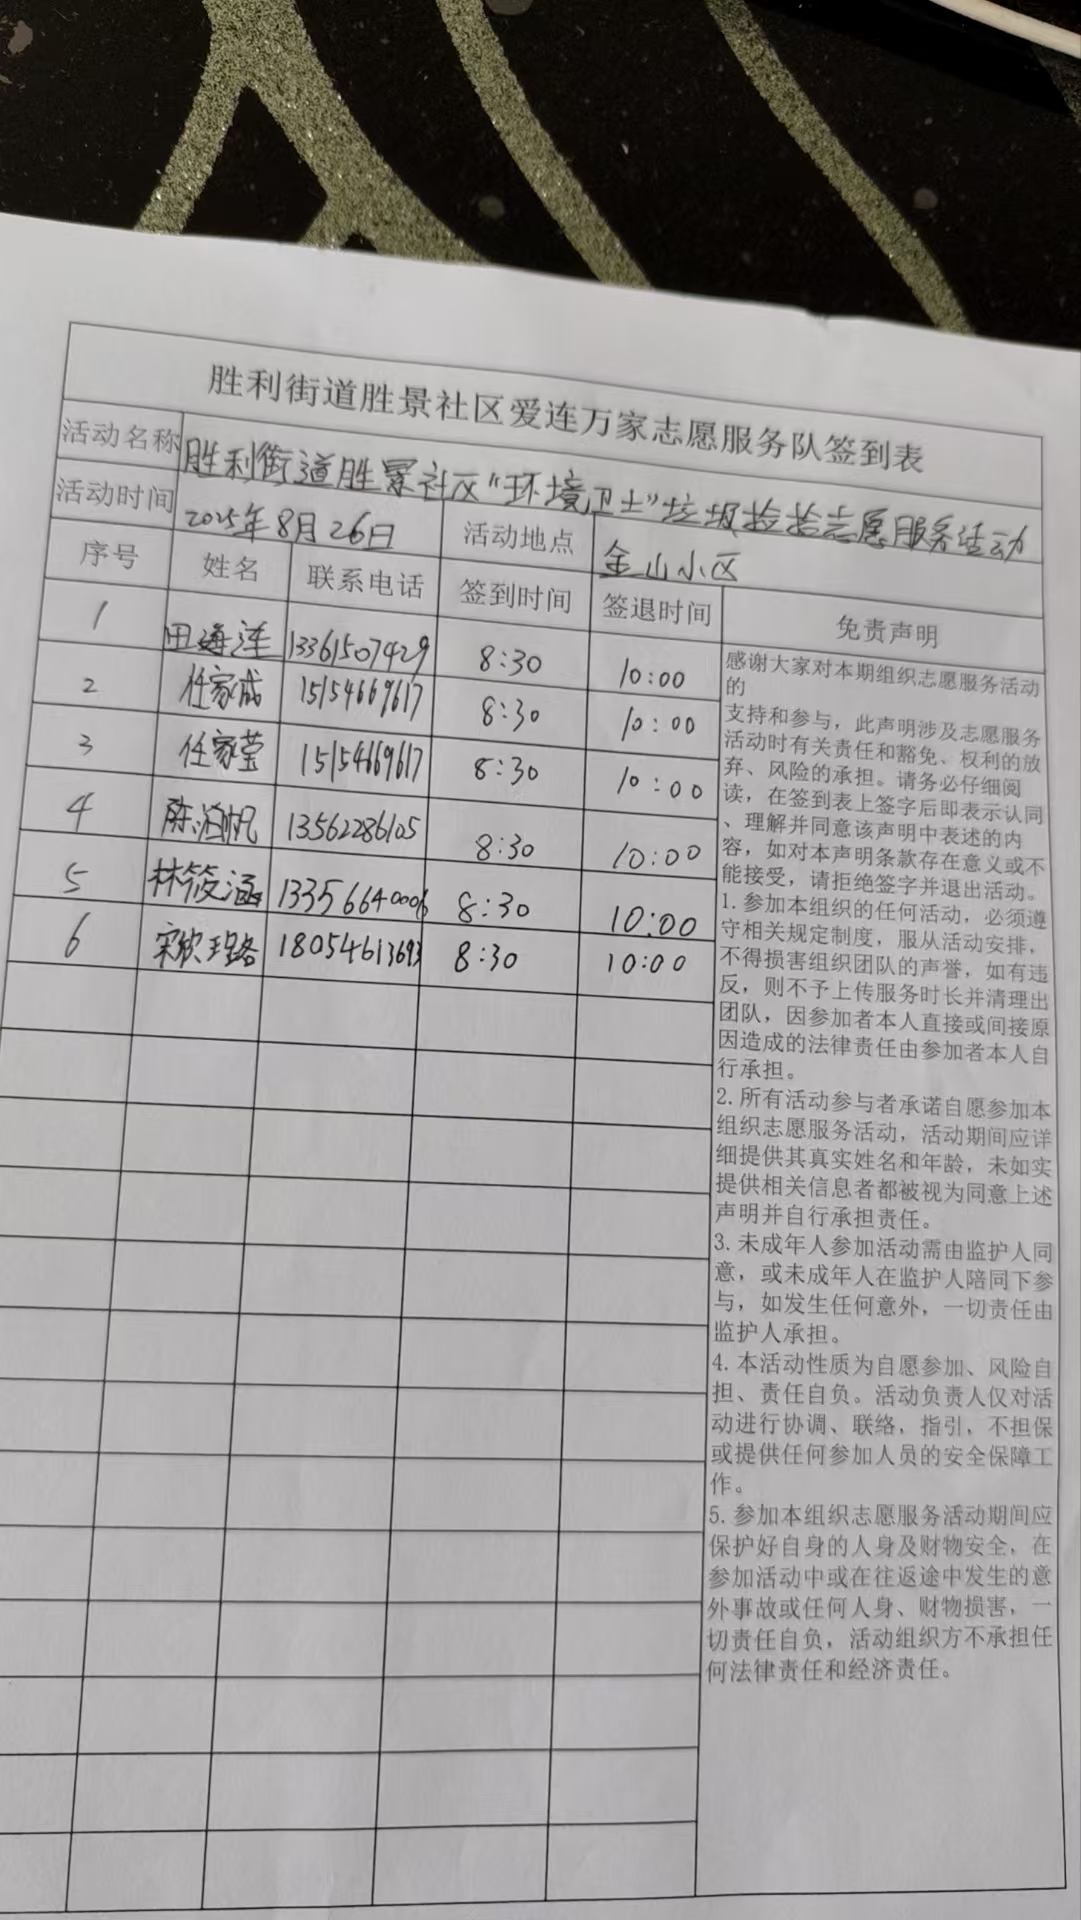 胜利街道胜景社区爱连万家志愿服务队签到表
活动名称 胜利街道胜景社区“环境卫士”垃圾捡拾志愿服务活动
活动时间 2025年8月26日 活动地点 金山小区
序号 姓名 联系电话 签到时间 签退时间 免责声明
1 田海涟 13361507429 8:30 10:00
2 任家成 15154669617 8:30 10:00
3 任家莹 15154669617 8:30 10:00
4 陈泊帆 13562286105 8:30 10:00
5 林筱涵 13356640006 8:30 10:00
6 宋欣珞 18054613693 8:30 10:00
感谢大家对本期组织志愿服务活动
的
支持和参与，此声明涉及志愿服务
活动时有关责任和豁免、权利的放
弃、风险的承担。请务必仔细阅
读，在签到表上签字后即表示认同
、理解并同意该声明中表述的内
容，如对本声明条款存在意义或不
能接受，请拒绝签字并退出活动。
1.参加本组织的任何活动，必须遵
守相关规定制度，服从活动安排，
不得损害组织团队的声誉，如有违
反，则不予上传服务时长并清理出
团队，因参加者本人直接或间接原
因造成的法律责任由参加者本人自
行承担。
2.所有活动参与者承诺自愿参加本
组织志愿服务活动，活动期间应详
细提供其真实姓名和年龄，未如实
提供相关信息者都被视为同意上述
声明并自行承担责任。
3.未成年人参加活动需由监护人同
意，或未成年人在监护人陪同下参
与，如发生任何意外，一切责任由
监护人承担。
4.本活动性质为自愿参加、风险自
担、责任自负。活动负责人仅对活
动进行协调、联络，指引，不担保
或提供任何参加人员的安全保障工
作。
5.参加本组织志愿服务活动期间应
保护好自身的人身及财物安全，在
参加活动中或在往返途中发生的意
外事故或任何人身、财物损害，一
切责任自负，活动组织方不承担任
何法律责任和经济责任。